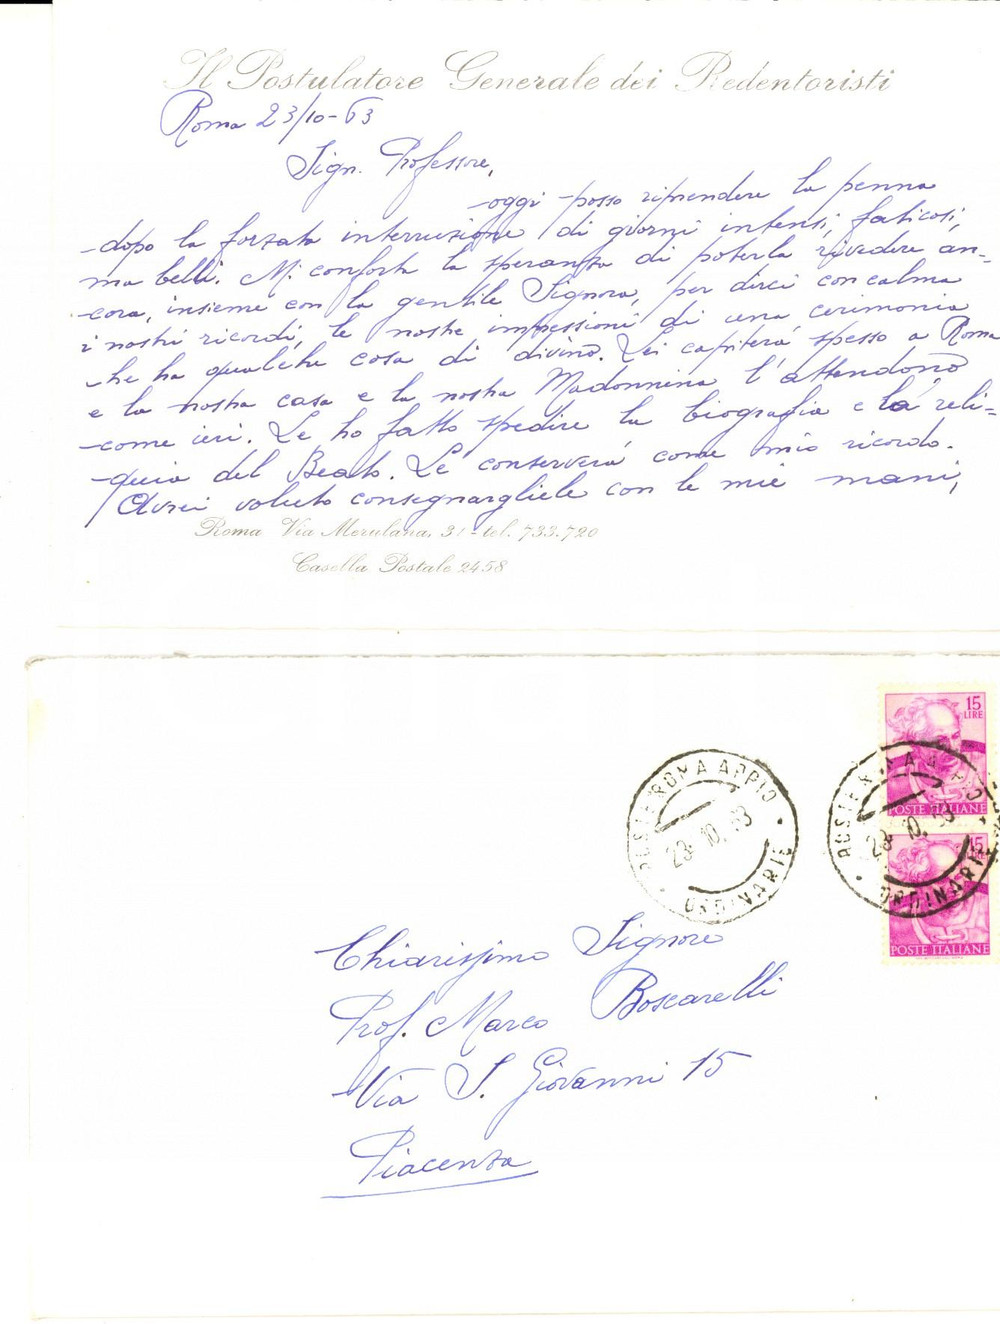 Il Postulatore Generale dei Redentoristi
Roma 23/10-63
Sign. Professore,
oggi posso riprendere la penna
dopo la forzata interruzione di giorni intensi, faticosi,
ma belli. Mi conforta la speranza di poterla rivedere an-
cora, insieme con la gentile Signora, per dirci con calma
i nostri ricordi, le nostre impressioni di una cerimonia
che ha qualche cosa di divino. Lei capiterà spesso a Roma
e la nostra casa e la nostra Madonnina l'attendono
come ieri. Le ho fatto spedire la biografia e la reli-
quia del Beato. Le conserverà come mio ricordo.
Avrei voluto consegnargliele con le mie mani,
Roma Via Merulana, 31 - tel. 733.720
Casella Postale 2458
15 LIRE
POSTE ITALIANE
15
POSTE ITALIANE
POSTE ROMA APPIO
23. 10. 63
ORDINARIE
POSTE ROMA APPIO
23. 10. 63
ORDINARIE
Chiarissimo Signore
Prof. Marco Boscarelli
Via S. Giovanni 15
Piacenza